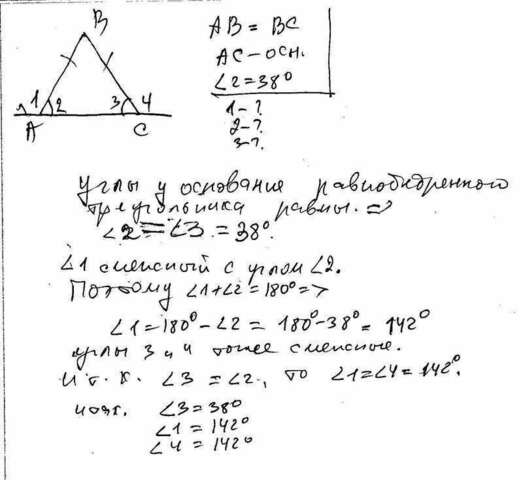 B
1 2 3 4
A C
AB = BC
AC - осн.
∠2 = 38°
1 - ?
2 - ?
3 - ?
Углы у основание равнобедренного
треугольника равны. =>
∠2 = ∠3 = 38°.
∠1 смежный с углом ∠2.
Поэтому ∠1 + ∠2 = 180° =>
∠1 = 180° - ∠2 = 180° - 38° = 142°
углы 3 и 4 тоже смежные.
И т. к. ∠3 = ∠2, то ∠1 = ∠4 = 142°.
∠3 = 38°
∠1 = 142°
∠4 = 142°